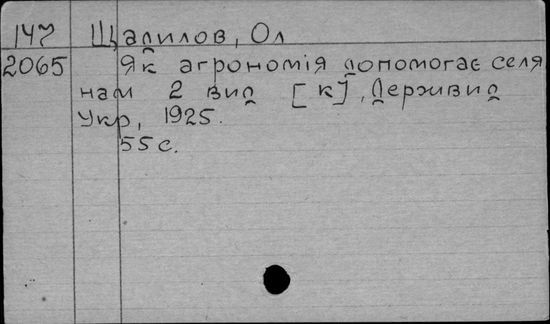 147 Щадилов, Ол
2065 Як агрономія допомогає селя
нам 2 вид [к], Держвид
Укр, 1925.
55 с.